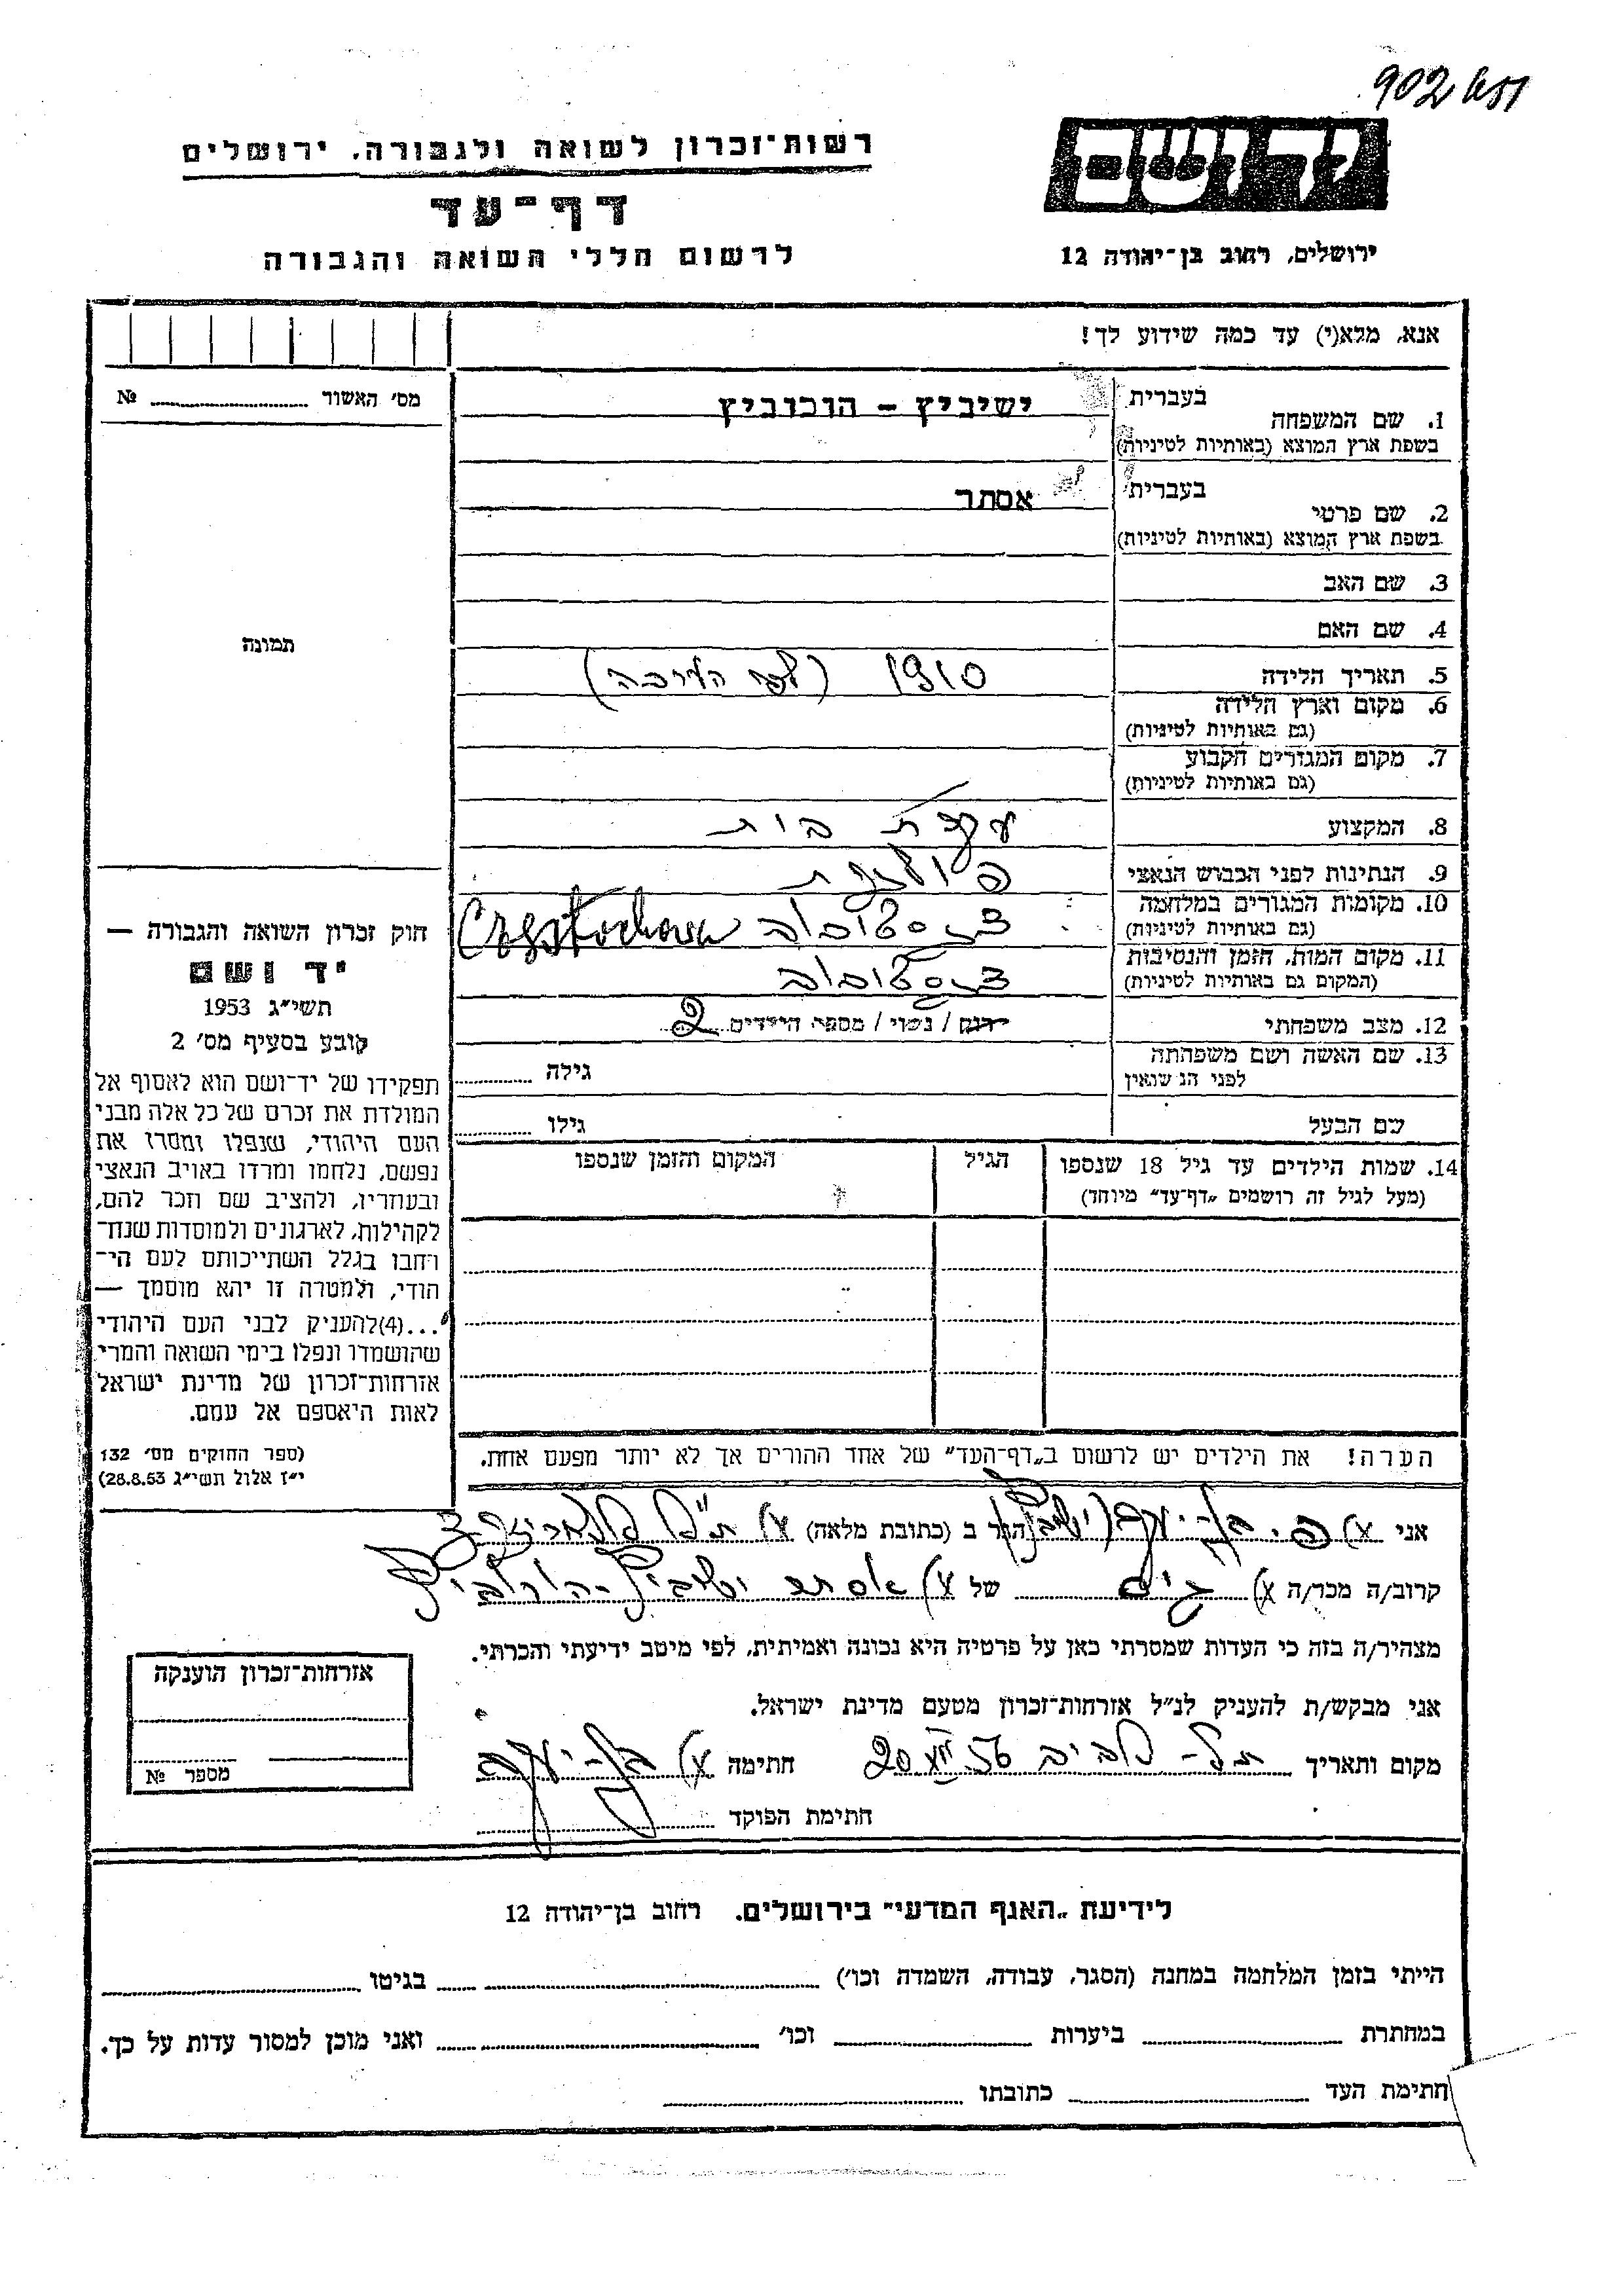 902
רשות־זכרון לשואה ולגבורה, ירושלים
יד ושם
דף־עד
לרשום חללי השואה והגבורה
ירושלים, רחוב בן־יהודה 12
אנא, מלא(י) עד כמה שידוע לך!
מס׳ האשור ........ №
1. שם המשפחה
בעברית
ישיביץ - הורוביץ
בשפת ארץ המוצא (באותיות לטיניות)
2. שם פרטי
בעברית
אסתר
בשפת ארץ המוצא (באותיות לטיניות)
3. שם האב
4. שם האם
תמונה
5. תאריך הלידה
1910 (לפי הערכה)
6. מקום וארץ הלידה
(גם באותיות לטיניות)
7. מקום המגורים הקבוע
(גם באותיות לטיניות)
8. המקצוע
עקרת בית
9. הנתינות לפני הכבוש הנאצי
פולנית
10. מקומות המגורים במלחמה
(גם באותיות לטיניות)
צ'נסטוכוב Częstochowa
11. מקום המות, הזמן והנסיבות
(המקום גם באותיות לטיניות)
צ'נסטוכוב
12. מצב משפחתי
רווק / נשוי / מספר הילדים 2
13. שם האשה ושם משפחתה
לפני הנשואין
גילה ........
שם הבעל
גילו ........
חוק זכרון השואה והגבורה —
יד ושם
תשי״ג 1953
קובע בסעיף מס׳ 2
תפקידו של יד־ושם הוא לאסוף אל
המולדת את זכרם של כל אלה מבני
העם היהודי, שנפלו ומסרו את
נפשם, נלחמו ומרדו באויב הנאצי
ובעוזריו, ולהציב שם וזכר להם,
לקהילות, לארגונים ולמוסדות שנח־
רבו בגלל השתייכותם לעם הי־
הודי, ולמטרה זו יהא מוסמך —
...(4)להעניק לבני העם היהודי
שהושמדו ונפלו בימי השואה והמרי
אזרחות־זכרון של מדינת ישראל
לאות היאספם אל עמם.
(ספר החוקים מס׳ 132
י״ז אלול תשי״ג 28.8.53)
14. שמות הילדים עד גיל 18 שנספו
(מעל לגיל זה רושמים „דף־עד״ מיוחד)
הגיל
המקום והזמן שנספו
הערה! את הילדים יש לרשום ב„דף־העד״ של אחד ההורים אך לא יותר מפעם אחת.
אני x) פ. בן-יעקב (ישיביץ) הגר ב (כתובת מלאה) x)
קרוב/ה מכר/ה x) גיס של x) אסתר ישיביץ-הורוביץ
מצהיר/ה בזה כי העדות שמסרתי כאן על פרטיה היא נכונה ואמיתית, לפי מיטב ידיעתי והכרתי.
אני מבקש/ת להעניק לנ״ל אזרחות־זכרון מטעם מדינת ישראל.
מקום ותאריך תל-אביב 20 XII 56 חתימה x) בן-יעקב
חתימת הפוקד ........
אזרחות־זכרון הוענקה
מספר №
לידיעת „האגף המדעי״ בירושלים. רחוב בן־יהודה 12
הייתי בזמן המלחמה במחנה (הסגר, עבודה, השמדה וכו׳) ........ בגיטו ........
במחתרת ........ ביערות ........ וכו׳ ........ ואני מוכן למסור עדות על כך.
חתימת העד ........ כתובתו ........